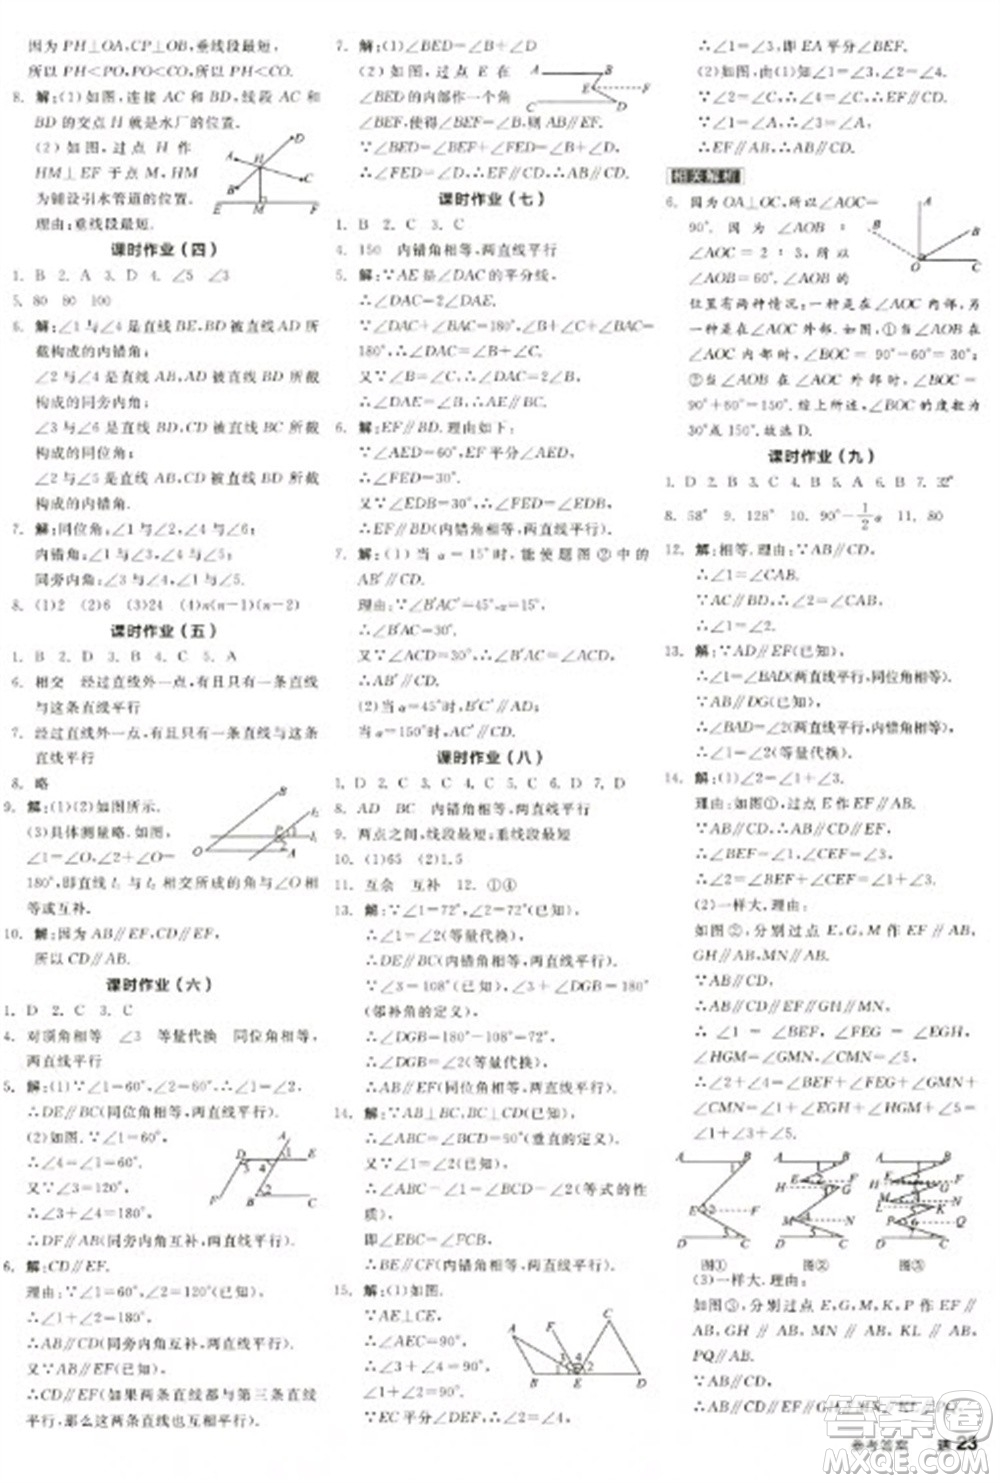 因为 PH⊥OA,CP⊥OB,垂线段最短,
所以 PH<PO,PO<OC,所以 PH<OC.
8. 解:(1)如图,连接 AC 和 BD,线段 AC 和
BD 的交点 H 就是水厂的位置.
(2)如图,过点 H 作
HM⊥EF 于点 M,HM
为铺设引水管道的位置.
理由:垂线段最短.
课时作业(四)
1. B 2. A 3. D 4. ∠5 ∠3
5. 80 80 100
6. 解:∠1 与∠4 是直线 BE,BD 被直线 AD 所
截构成的内错角;
∠2 与∠4 是直线 AC,BD 被直线 AD 所截
构成的同旁内角;
∠3 与∠6 是直线 AB,CD 被直线 BD 所截
构成的同位角;
∠5 与∠2 是直线 AB,CD 被直线 AC 所截
构成的内错角.
7. 解:同位角:∠1 与∠2,∠4 与∠6;
内错角:∠1 与∠3,∠4 与∠5;
同旁内角:∠3 与∠4,∠1 与∠5.
8. (1)2 (2)6 (3)24 (4)n(n-1)(n-2)
课时作业(五)
1. B 2. D 3. C 4. C 5. A
6. 相交 经过直线外一点,有且只有一条直线
与这条直线平行
7. 经过直线外一点,有且只有一条直线与这条
直线平行
8. 略
9. 解:(1)(2)如图所示.
(3)具体测量略. 如图,
∠1=∠O,∠2+∠O=
180°,即直线 l₁ 与 l₂ 相交所成的角与∠O 相
等或互补.
10. 解:因为 AB∥EF,CD∥EF,
所以 CD∥AB.
课时作业(六)
1. D 2. C 3. C
4. 对顶角相等 ∠3 等量代换 同位角相等,
两直线平行
5. 解:(1)∵∠1=60°,∠2=60°,∴∠1=∠2,
∴DE∥BC(同位角相等,两直线平行).
(2)如图.∵∠1=60°,
∴∠4=∠1=60°.
又∵∠3=120°,
∴∠3+∠4=180°,
∴DF∥AB(同旁内角互补,两直线平行).
6. 解:CD∥EF.
理由:∵∠1=60°,∠2=120°(已知),
∴∠1+∠2=180°,
∴AB∥CD(同旁内角互补,两直线平行).
又∵AB∥EF(已知),
∴CD∥EF(如果两条直线都与第三条直线
平行,那么这两条直线也互相平行).
7. 解:(1)∠BED=∠B+∠D
(2)如图,过点 E 在
∠BED 的内部作一个角
∠BEF,使得∠BEF=
∠B,则 EF∥AB.
∵∠BED=∠BEF+∠FED=∠B+∠D,
∴∠FED=∠D,∴EF∥CD,∴AB∥CD.
课时作业(七)
1. B 2. C 3. C
4. 150 内错角相等,两直线平行
5. 解:∵AE 是∠DAC 的平分线,
∴∠DAC=2∠DAE.
∵∠DAC+∠BAC=180°,∠B+∠C+∠BAC=
180°,∴∠DAC=∠B+∠C.
又∵∠B=∠C,∴∠DAC=2∠B,
∴∠DAE=∠B,∴AE∥BC.
6. 解:EF∥BD.理由如下:
∵∠AED=60°,EF 平分∠AED,
∴∠FED=30°.
又∵∠EDB=30°,∴∠FED=∠EDB,
∴EF∥BD(内错角相等,两直线平行).
7. 解:(1)当 α=15°时,能使题图②中的
AB′∥CD.
理由:∵∠B′AC′=45°,α=15°,
∴∠B′AC=30°.
又∵∠C=30°,∴∠B′AC=∠C,
∴AB′∥CD.
(2)当 α=45°时,B′C′∥CD;
当 α=150°时,AC′∥CD.
课时作业(八)
1. D 2. C 3. C 4. C 5. C 6. D 7. D
8. AD BC 内错角相等,两直线平行
9. 两点之间,线段最短;垂线段最短
10. (1)65 (2)1.5
11. 互余 互补 12. ①④
13. 解:∵∠1=72°,∠2=72°(已知),
∴∠1=∠2(等量代换),
∴DE∥BC(内错角相等,两直线平行).
∵∠3=108°(已知),∠3+∠DGB=180°
(邻补角的定义),
∴∠DGB=180°-108°=72°,
∴∠DGB=∠2(等量代换),
∴AB∥EF(同位角相等,两直线平行).
14. 解:∵AB⊥BC,BC⊥CD(已知),
∴∠ABC=∠BCD=90°(垂直的定义).
又∵∠1=∠2(已知),
∴∠ABC-∠1=∠BCD-∠2(等式的性
质),
即∠EBC=∠BCF,
∴EB∥CF(内错角相等,两直线平行).
15. 解:(1)如图.
∵AE⊥CE,
∴∠AEC=90°,
∴∠2+∠3=90°,
∠1+∠4=90°.
又∵EC 平分∠DEF,∴∠3=∠4,
∴∠1=∠2,即 EA 平分∠BEF.
(2)如图,由(1)知∠1=∠2,∠3=∠4.
∵∠4=∠C,∴∠2=∠C,∴EF∥CD.
∵∠1=∠A,∴∠2=∠A,
∴EF∥AB,∴AB∥CD.
相关解析
6. 因为 OA⊥OC,所以∠AOC=
90°. 因为∠AOB:
∠AOC=2:3,所以
∠AOB=60°.∠AOB 的
位置有两种情况:一种是在∠AOC 内部,另
一种是在∠AOC 外部. 如图,①当∠AOB 在
∠AOC 内部时,∠BOC=90°-60°=30°;
②当∠AOB 在∠AOC 外部时,∠BOC=
90°+60°=150°. 综上所述,∠BOC 的度数为
30°或 150°.故选 D.
课时作业(九)
1. D 2. B 3. B 4. B 5. A 6. B 7. 32°
8. 58° 9. 128° 10. 90°-1/2α 11. 80
12. 解:相等. 理由:∵AB∥CD,
∴∠1=∠CAB.
∵AC∥BD,∴∠2=∠CAB,
∴∠1=∠2.
13. 解:∵AD∥EF(已知),
∴∠1=∠BAD(两直线平行,同位角相等).
∵AB∥DG(已知),
∴∠BAD=∠2(两直线平行,内错角相等),
∴∠1=∠2(等量代换).
14. 解:(1)∠2=∠1+∠3.
理由:如图①,过点 E 作 EF∥AB.
∵AB∥CD,∴CD∥EF,
∴∠BEF=∠1,∠CEF=∠3,
∴∠2=∠BEF+∠CEF=∠1+∠3.
(2)一样大,理由:
如图②,分别过点 E,G,M 作 EF∥AB,
GH∥AB,MN∥AB.
∵AB∥CD,
∴AB∥EF∥GH∥MN∥CD,
∴∠1=∠BEF,∠FEG=∠EGH,
∠HGM=∠GMN,∠CMN=∠5,
∴∠2+∠4=∠BEF+∠FEG+
∠GMN+∠CMN=∠1+∠EGH+
∠HGM+∠5=∠1+∠3+∠5.
图① 图② 图③
(3)一样大.理由:
如图③,分别过点 E,G,M,K,P 作 EF∥
AB,GH∥AB,MN∥AB,KL∥AB,
PQ∥AB.
∵AB∥CD,
答案圈
MXQE.COM
参考答案 23